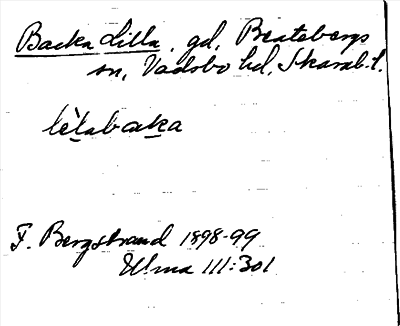 Backa Lilla, gd, Beatebergs
sn, Vadsbo hd, Skarab. l.
lètabaka
F. Bergstrand 1898-99
Ulma 111:301